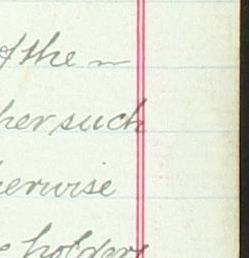 of the
her such
herwise
e holders